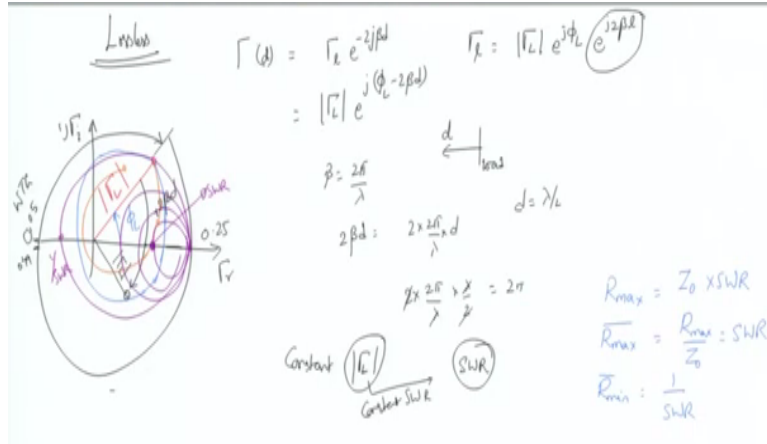 Lossless
Γ(d) = Γ_l e^{-2jβd}
= |Γ_L| e^{j(ϕ_L - 2βd)}
Γ_l = |Γ_L| e^{jϕ_L} e^{j2βl}
d
load
β = 2π/λ
d = λ/2
2βd = 2 × 2π/λ × d
2 × 2π/λ × λ/2 = 2π
Constant |Γ_L| SWR
Constant SWR
R_max = Z_0 × SWR
\overline{R_max} = R_max/Z_0 = SWR
\overline{R_min} = 1/SWR
jΓ_i
|Γ_L|
ϕ_L
2βd
SWR
0.25
Γ_r
1/SWR
WTG